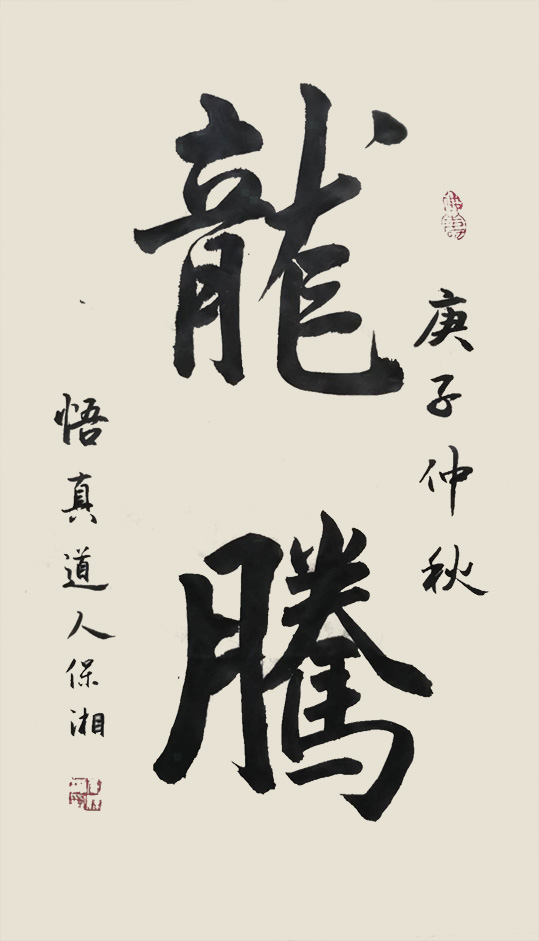 庚子仲秋
龍騰
悟真道人保湘